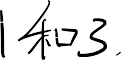 1和3.